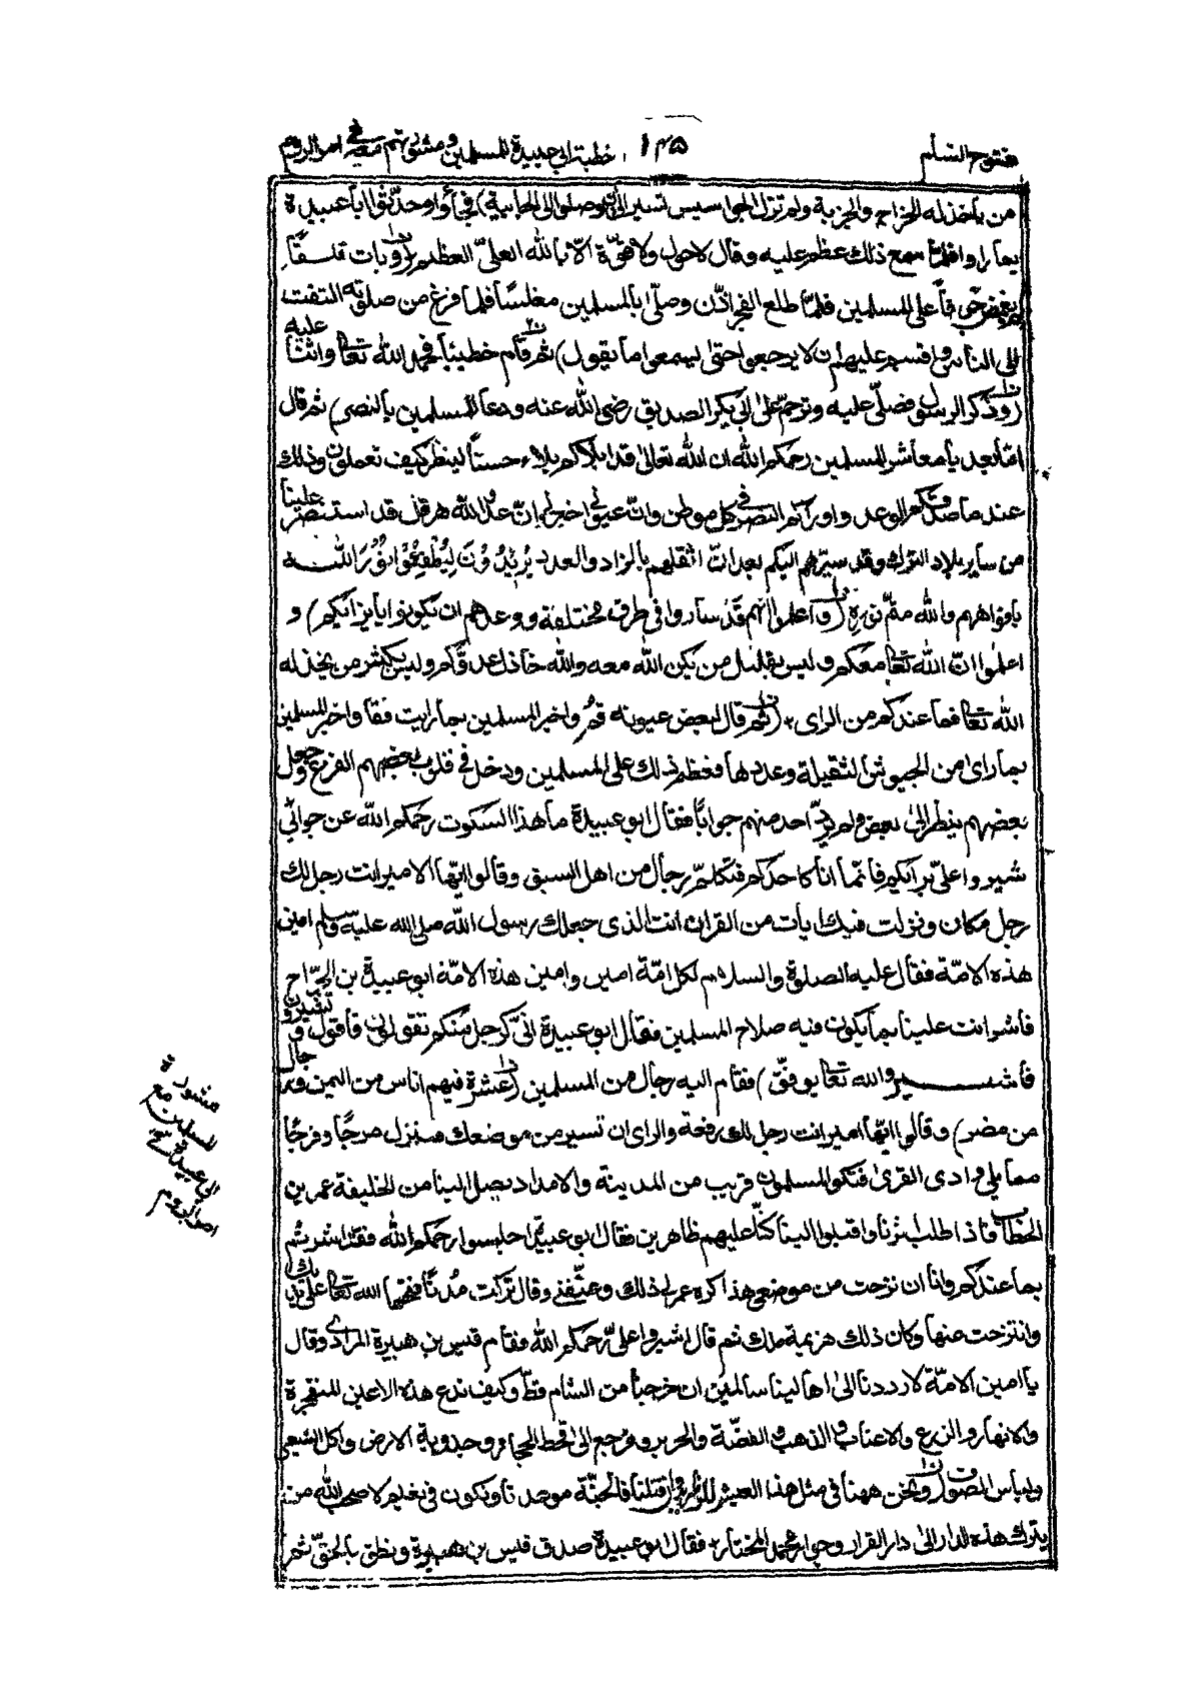 فتوح الشام
١٣٥
خطبة ابي عبيدة للمسلمين ومشورتهم معه في امر الروم
من يأخذ له الخراج والجزية ولم تزل الجواسيس تسير الى ان وصلوا الى الجابية) فجاؤا وحدثوا ابا عبيدة
بما راوا فلما سمع ذلك عظم عليه وقال لا حول ولا قوّة الّا بالله العليّ العظيم (وبات قلقاً
لم يغمض خوفاً على المسلمين فلمّا طلع الفجر اذّن وصلّى بالمسلمين مغلساً فلما فرغ من صلوته التفت
الى الناس واقسم عليهم ان لا يرجعوا حتى يسمعوا ما يقول) ثم قام خطيباً فحمد الله تعالى واثنا عليه
(وذكر الرسول فصلّى عليه وترحّم على ابي بكر الصديق رضي الله عنه ودعا للمسلمين بالنصر) ثم قال
امّا بعد يا معاشر المسلمين رحمكم الله ان الله تعالى قد ابلاكم بلاء حسناً لينظر كيف تعملون وذلك
عند ما صدقكم الوعد واوراكم النصر في كل موطن وانّ عيوني اخبروني انّ عدو الله هرقل قد استنصر علينا
من سأير بلاد الترك وقد سيّرهم اليكم بعد انّ اثقلهم بالزاد والعدد يُرِيْدُوْنَ لِيُطْفِئُوْا نُوْرَ اللّٰه
بأفواههم والله متمّ نوره (واعلموا انهم قد ساروا في طرف مختلفة ووعدهم ان تكونوا بازائكم) و
اعلموا انّ الله تعالى معكم وليس بقليل من يكن الله معه والله خاذل عدوّكم وليس بكثير من يخذله
الله تعالى فما عندكم من الراى (ثم قال لبعض عيونه قم واخبر المسلمين بما رايت فقام واخبر المسلمين
بما راى من الجيوش الثقيلة وعددها فعظم ذلك على المسلمين ودخل في قلوب بعضهم الفزع وجعل
بعضهم ينظر الى بعض ولم يردّ احد منهم جواباً فقال ابو عبيدة ما هذا السكوت رحمكم الله عن جوابي
شيروا عليّ برأيكم فانّما انا كاحدكم فتكلم رجال من اهل السبق وقالوا ايّها الامير انت رجل لك
رجل مكان ونزلت فيك ايات من القران انت الذى جعلك رسول الله صلى الله عليه وسلم امين
هذه الامّة فقال عليه الصلوة والسلام لكل امّة امين وامين هذه الامّة ابو عبيدة بن الجرّاح
فأشر انت علينا بما يكون فيه صلاح المسلمين فقال ابو عبيدة انّي كرجل منكم تقولون فاقول وتشيرون
فأشير والله تعالى يوفّق) فقام اليه رجال من المسلمين (عشرة فيهم اناس من اليمن ورجال
من مضر) وقالوا ايّها امير انت رجل لك رفعة والراى ان تسير من موضعك فتنزل مرجاً وفرجا
مما يلى وادى القرى فتكو المسلمون قريب من المدينة والامداد يصل الينا من الخليفة عمر بن
الخطاب فاذا طلب اثرنا واقبلوا الينا كنّا عليهم ظاهرين فقال ابو عبيدة اجلسوا رحمكم الله فقد اشرتم
بما عندكم وانا ان نزحت من موضعي هذا كره عمر لي ذلك وعنّفني وقال تركت مُدناً فتحها الله تعالى على يديك
وانتزحت عنها وكان ذلك هزيمة منك ثم قال اشيروا عليّ رحمكم الله فقام قيس بن هبيرة المرادي وقال
يا امين الامّة لا ردنا الى اهالينا سالمين ان خرجنا من الشام قطّ وكيف ندع هذه الاعين المنفجرة
والانهار والزرع والاعناب والذهب والفضّة والحرير ونرجع الى قحط الحجاز وجدوبة الارض واكل الشعير
ولباس الصوف ونحن ههنا في مثل هذا العيش الرغد وان قتلنا فالجنّة موعدنا ونكون في نعيم لا صحب الله من
يترك هذه الدار الى دار القرار وجوار محمد المختار فقال ابو عبيدة صدق قيس بن هبيرة ونطق بالحقّ ثم
مشورة
المسلمين مع
ابي عبيدة في
امر الروم